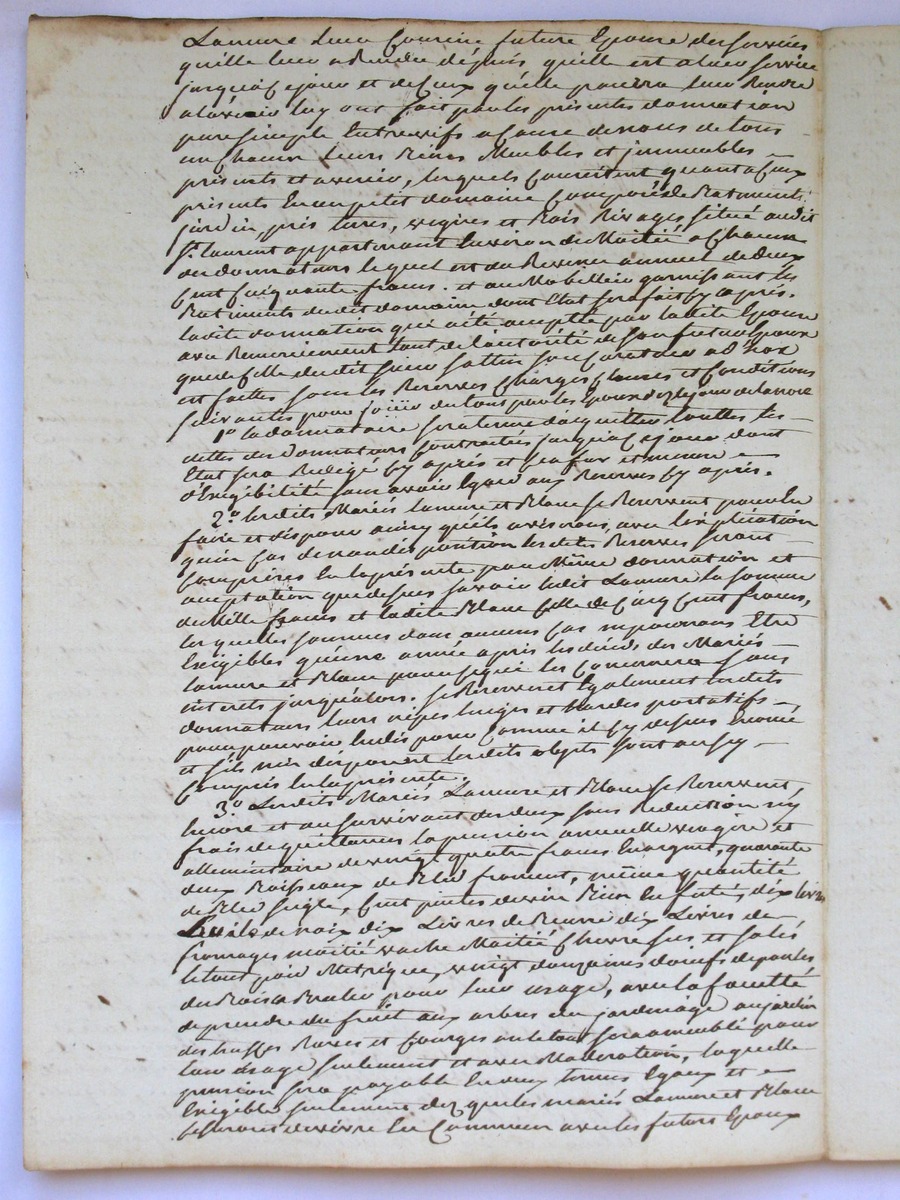 Lamure leur Cousine future Epouse des services
quille leur a Rendu depuis quille est a leur service
jusqu'a ce jour et de Ceux qu'elle pourra leur Rendre
a lavenir luy ont fait par les présentes donnation
pure simple Entrevifs a Cause de noces de tous
un Chacun leurs Biens Meubles et jmmeubles
présents et avenir, lesquels Consistent quant a Ceux
présents En un petit domaine Composé de Batiments
jardin, prés terres, vignes et Bois Rivages situé audit
St. laurent appartenant Environ de Moitié a Chacun
des donnateurs lequel est du Revenu annuel de deux
Cent Cinquante francs. et au Mobillier garnissant les
Batiments dudit domaine dont Etat sera fait Cy après.
ladite donnation qui a été acceptée par ladite Epouse
avec Remerciement tant de l'autorité de son futur Epoux
que de Celle dudit sieur son Curateur ad hoc
est faittes sous les Reserves Charges Clauses et Conditions
suivantes pour joüir du tout par les Epoux dez le jour de la noce
1º la donnataire sera tenue d'acquitter touttes les
dettes des Donnateurs Contractées jusqu'a Ce jour dont
Etat sera Redigé Cy après et Ce a fur et mesure
d'Exigibilité sans avoir Egard aux Reserves Cy après.
2º. lesdits Mariés Lamure et Blanc se Reservent pour En
faire et disposer ainsy qu'ils aviseront, avec l'explication
qu'en Cas de non disposition lesdites Reserves seront
Comprises En la présente par Même donnation et
acceptation que dessus savoir ledit Lamure la somme
de Mille francs et ladite Blanc Celle de Cinq Cent francs,
lesquelles sommes dans aucun Cas ne pourront Etre
Exigibles qu'une année après les décès des Mariés
Lamure et Blanc pour Ce qui les Concernera sans
interets jusqu'alors. se Reservent Egalement lesdits
donnateurs leurs nipes linges et hardes portatifs
pour pouvoir En disposer Comme il Cy dessus Enoncé
et s'ils n'en disposent lesdits objets sont aussy
Compris En la présente.
3º Lesdits Mariés Lamure et Blanc se Reservent
Encore et au survivant des deux sans Reduction ny
frais de quittances la pension annuelle viagère et
allimentaire de vingt quatre francs En argent, quarante
deux Boisseaux de Bled froment, même quantité
de Bled seigle, Cent pintes de vin Bien En futé, dix livres
huile de noix dix Livres de Beurre dix Livres de
fromages moitié vache Moitié Chevre secs et salés
le tout poid Metrique, vingt douzaines d'oeufs de poules
du Bois a Bruler pour leur usage, avec la faculté
de prendre du fruit aux arbres du jardinage au jardin
des Raves et Courges au le tout sera pour
leur usage seulement et avec Moderation, laquelle
pension sera payable En deux termes Egaux et
Exigible seulement dez que les mariés Lamure et Blanc
Cesseront de vivre En Commun avec les futurs Epoux